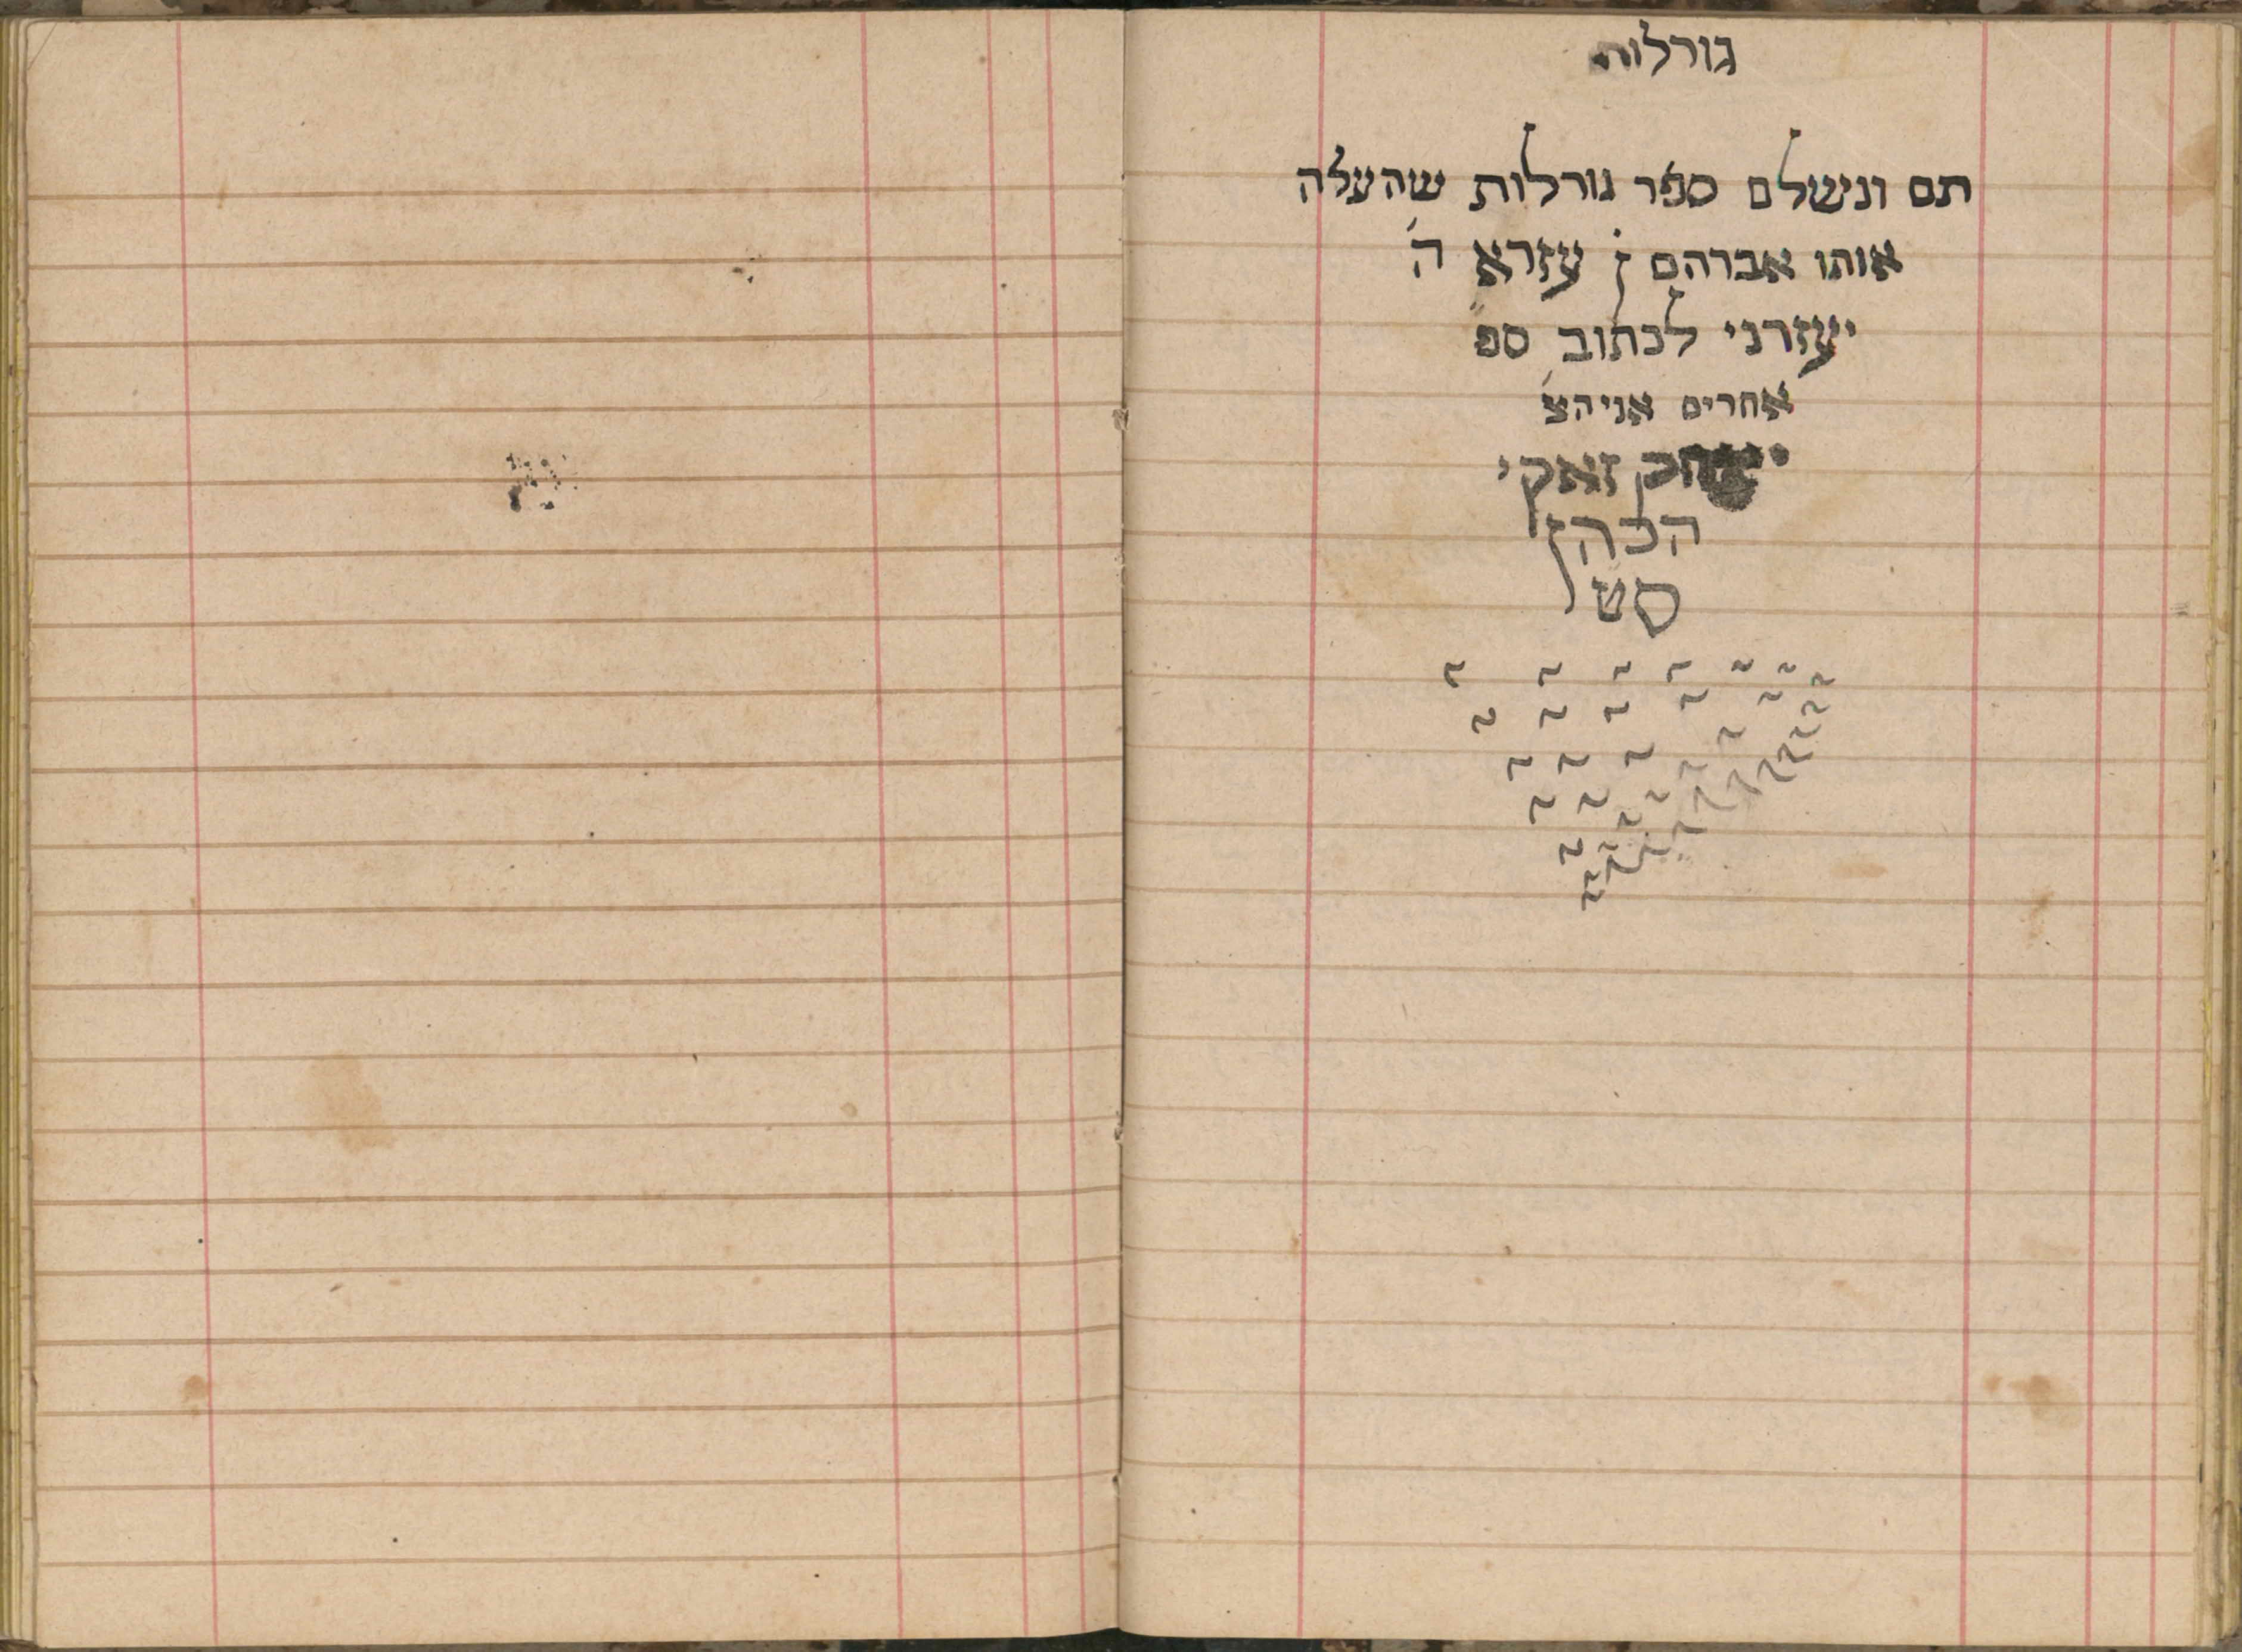 גורלות
תם ונשלם ספר גורלות שהעלה
אותו אברהם ן׳ עזרא ה׳
יעזרני לכתוב ספ״
אחרים אני הצ׳
יצחק זאקי
הכהן
סט